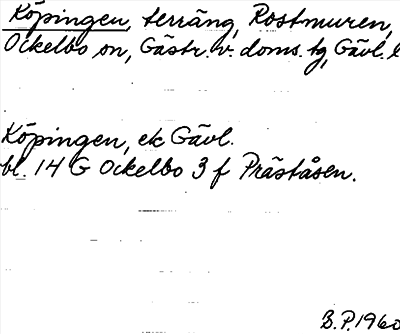 Köpingen, terräng, Rostmuren,
Ockelbo sn, Gästr. v. doms. tg, Gävl. l
Köpingen, ek Gävl.
bl. 14 G Ockelbo 3 f Präståsen.
B.P. 1960